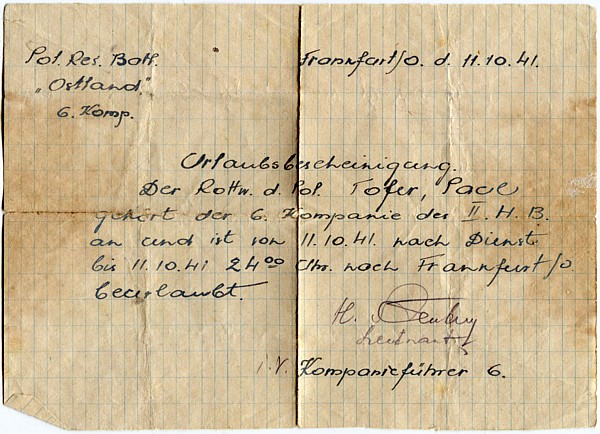 Pol. Res. Batl. Frankfurt/O. d. 11.10.41.
„Ostland."
6. Komp.
Urlaubsbescheinigung.
Der Rottw. d. Pol. Tofer, Paul
gehört der 6. Kompanie des II. H. B.
an und ist von 11.10.41 nach Dienst
bis 11.10.41 24 00 Uhr. nach Frankfurt/O.
beurlaubt.
Leutnant
i.V. Kompanieführer 6.